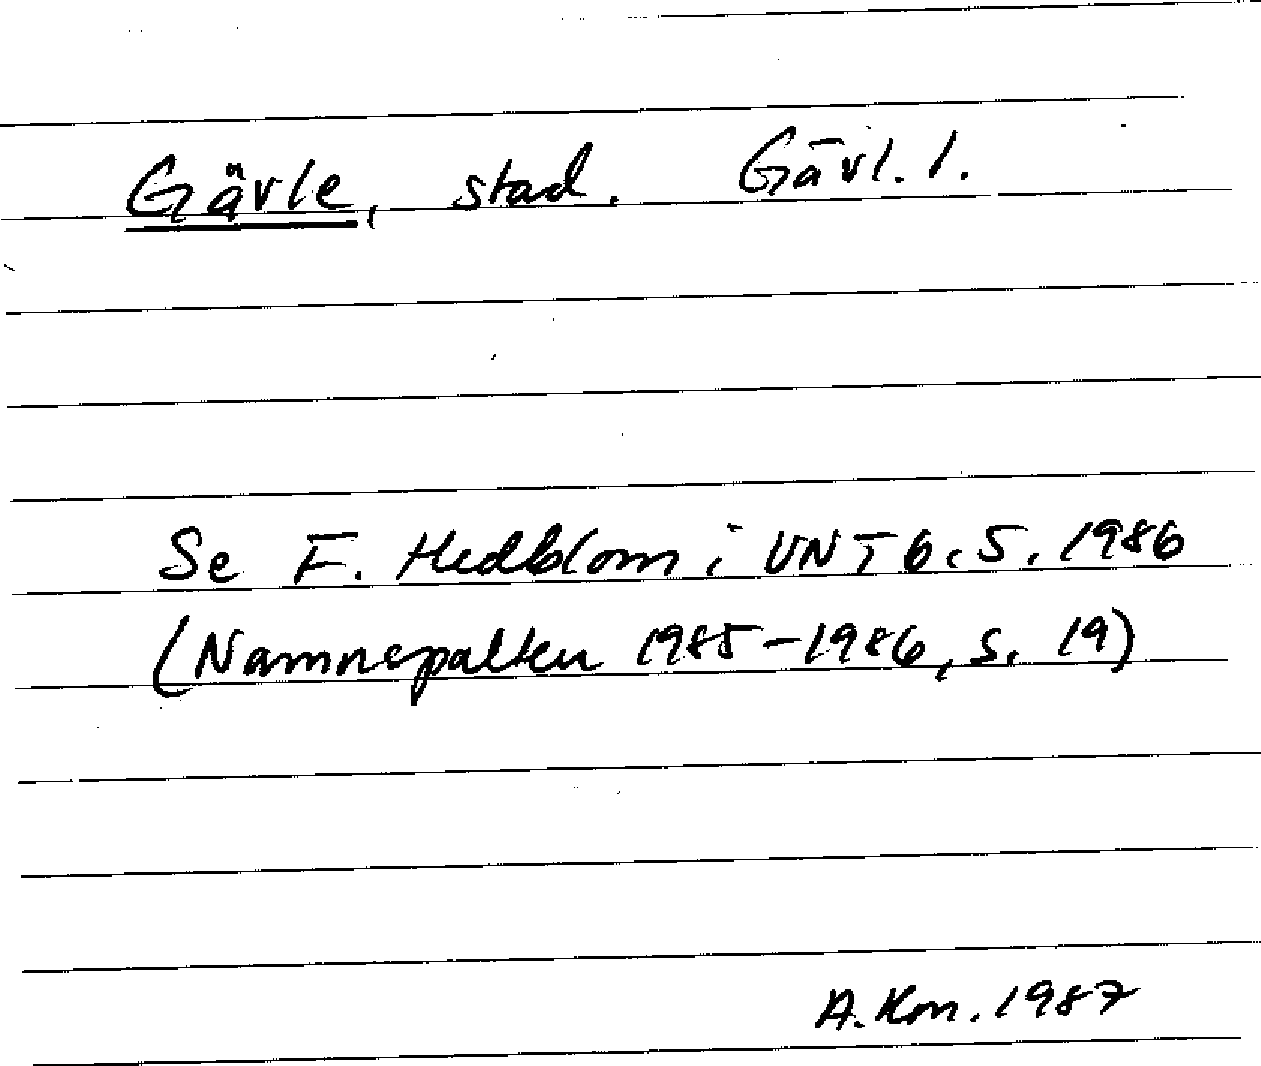 Gävle, stad. Gävl. l.
Se F. Hedblom i UNT 6.5.1986
(Namnspalten 1985-1986, s. 19)
A. Km. 1987